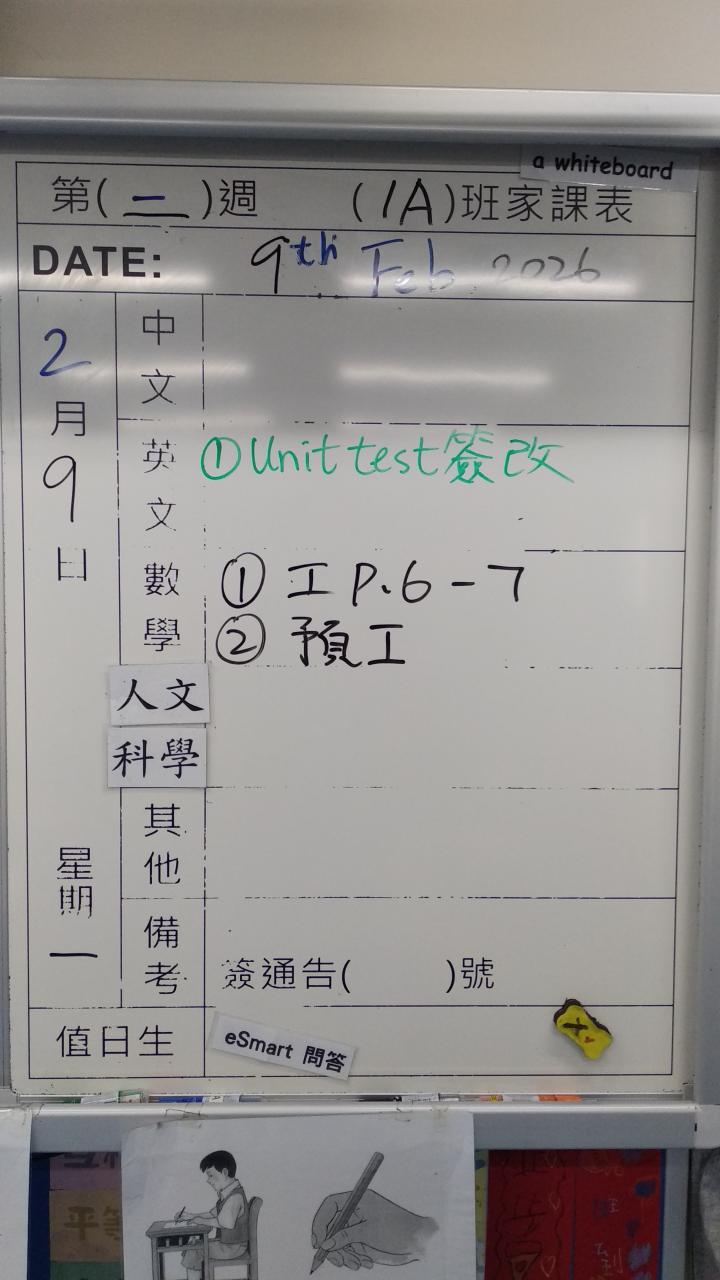 a whiteboard
第(二)週 (1A)班家課表
DATE: 9th Feb 2026
2月9日
星期一
中文
英文 ①Unit test簽改
數學 ① 工 P.6-7
② 預工
人文
科學
其他
備考 簽通告( )號
值日生 eSmart 問答
平等